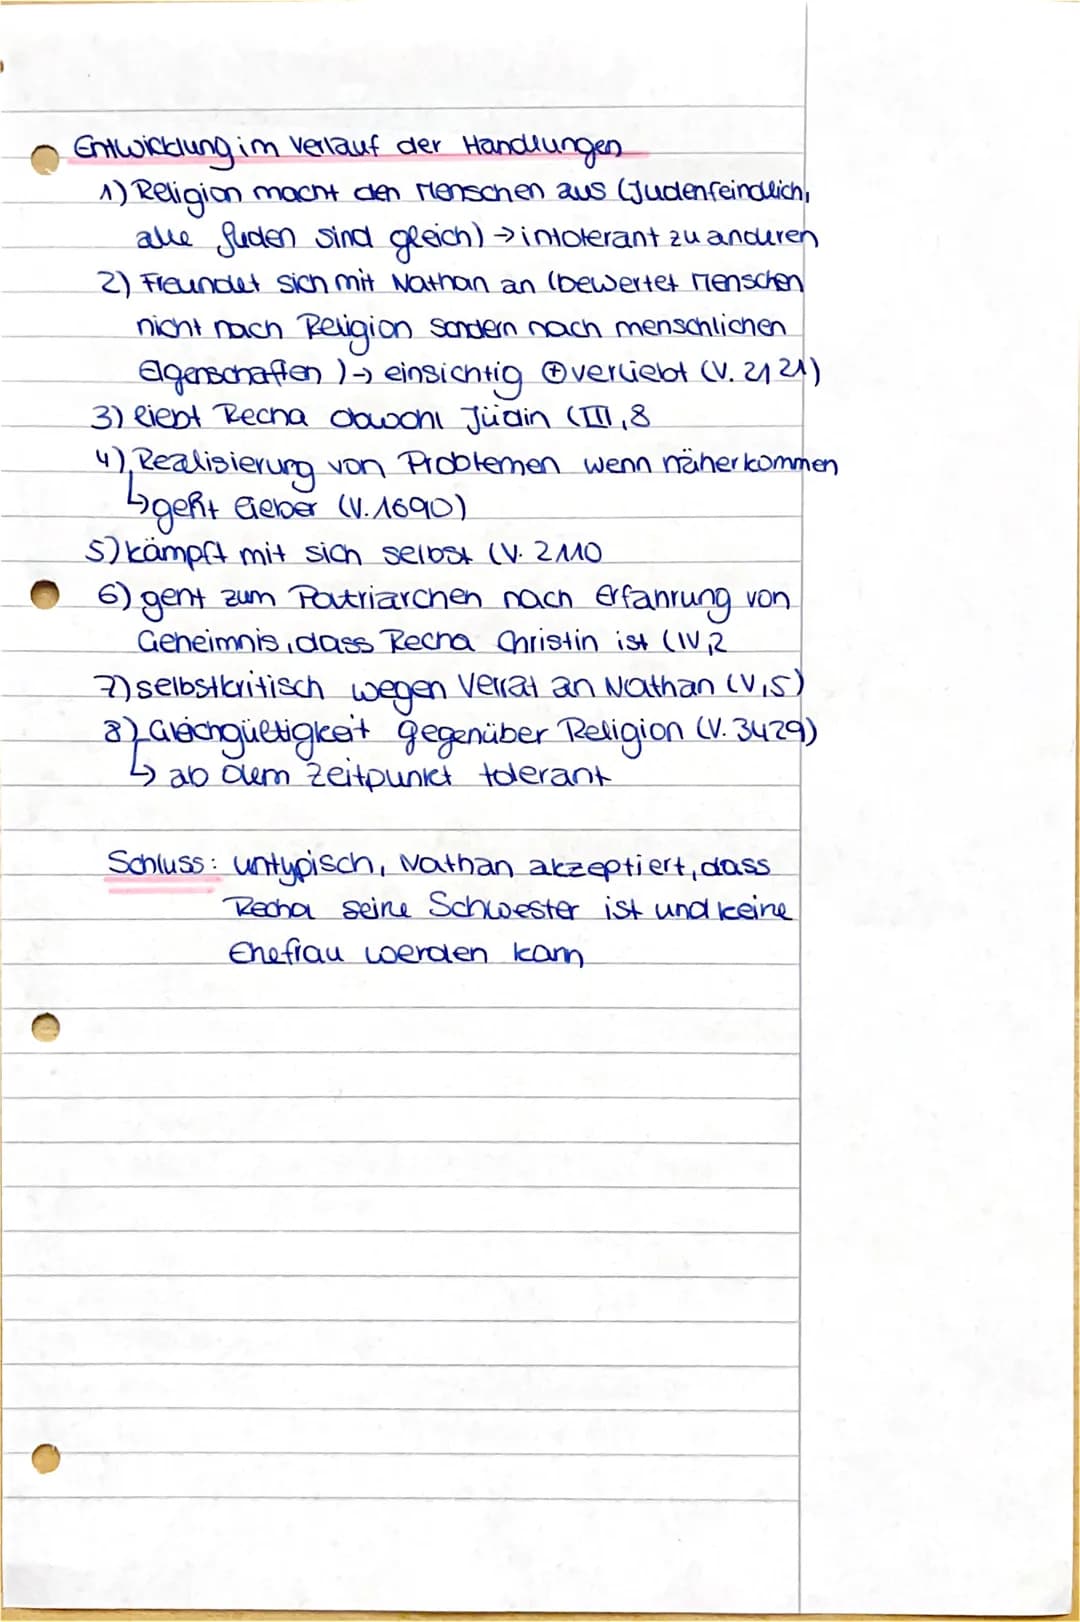 Entwicklung im Verlauf der Handlungen
1) Religion macht den Menschen aus (Judenfeindlich,
alle Juden sind gleich) → intolerant zu anderen
2) Freundet sich mit Nathan an (bewertet Menschen
nicht nach Religion sondern nach menschlichen
Eigenschaften) → einsichtig ⊕ verliebt (V. 2121)
3) liebt Recha obwohl Jüdin (III,8
4) Realisierung von Problemen wenn näher kommen
↳ geht lieber (V. 1690)
5) kämpft mit sich selbst (V. 2110
6) geht zum Patriarchen nach Erfahrung von
Geheimnis, dass Recha Christin ist (IV,2
7) selbstkritisch wegen Verrat an Nathan (V,5)
8) Gleichgültigkeit gegenüber Religion (V. 3429)
↳ ab dem Zeitpunkt tolerant
Schluss: untypisch, Nathan akzeptiert, dass
Recha seine Schwester ist und keine
Ehefrau werden kann